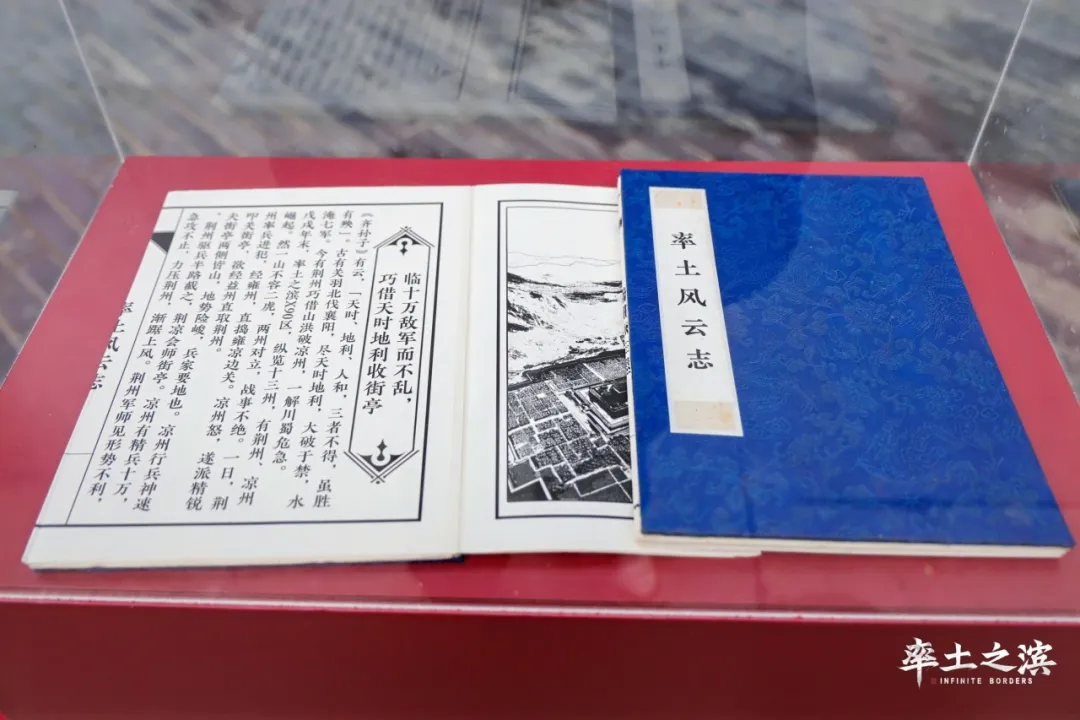 临十万敌军而不乱,
巧借天时地利收街亭
《齐孙子》有云,「天时、地利、人和,三者不得,虽胜
有殃」。古有关羽北伐襄阳,尽天时地利,大破于禁,水
淹七军。今有荆州巧借山洪破凉州,一解川蜀危急。
戊戌年末,率土之滨X90区,纵览十三州,有荆州、凉州
崛起。然一山不容二虎,两州对立,战事不绝。一日,荆
州率兵进犯,经雍州,直捣雍凉边关。凉州怒,遂派精锐
叩关街亭,欲经益州直取荆州。
夫街亭两侧皆山,地势险峻,兵家要地也。凉州行兵神速
,荆州驱兵半路截之,荆凉会师街亭。凉州有精兵十万,
急攻不止,力压荆州,渐踞上风。荆州军师见形势不利,
率土风云志
率土风云志
率土之滨
INFINITE BORDERS